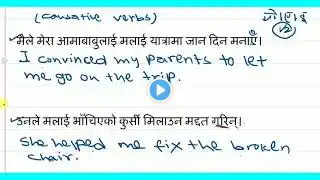 (causative verbs)
मैले मेरा आमाबाबुलाई मलाई यात्रामा जान दिन मनाएँ।
I convinced my parents to let
me go on the trip.
उनले मलाई भाँचिएको कुर्सी मिलाउन मद्दत गरिन्।
she helped me fix the broken
chair.